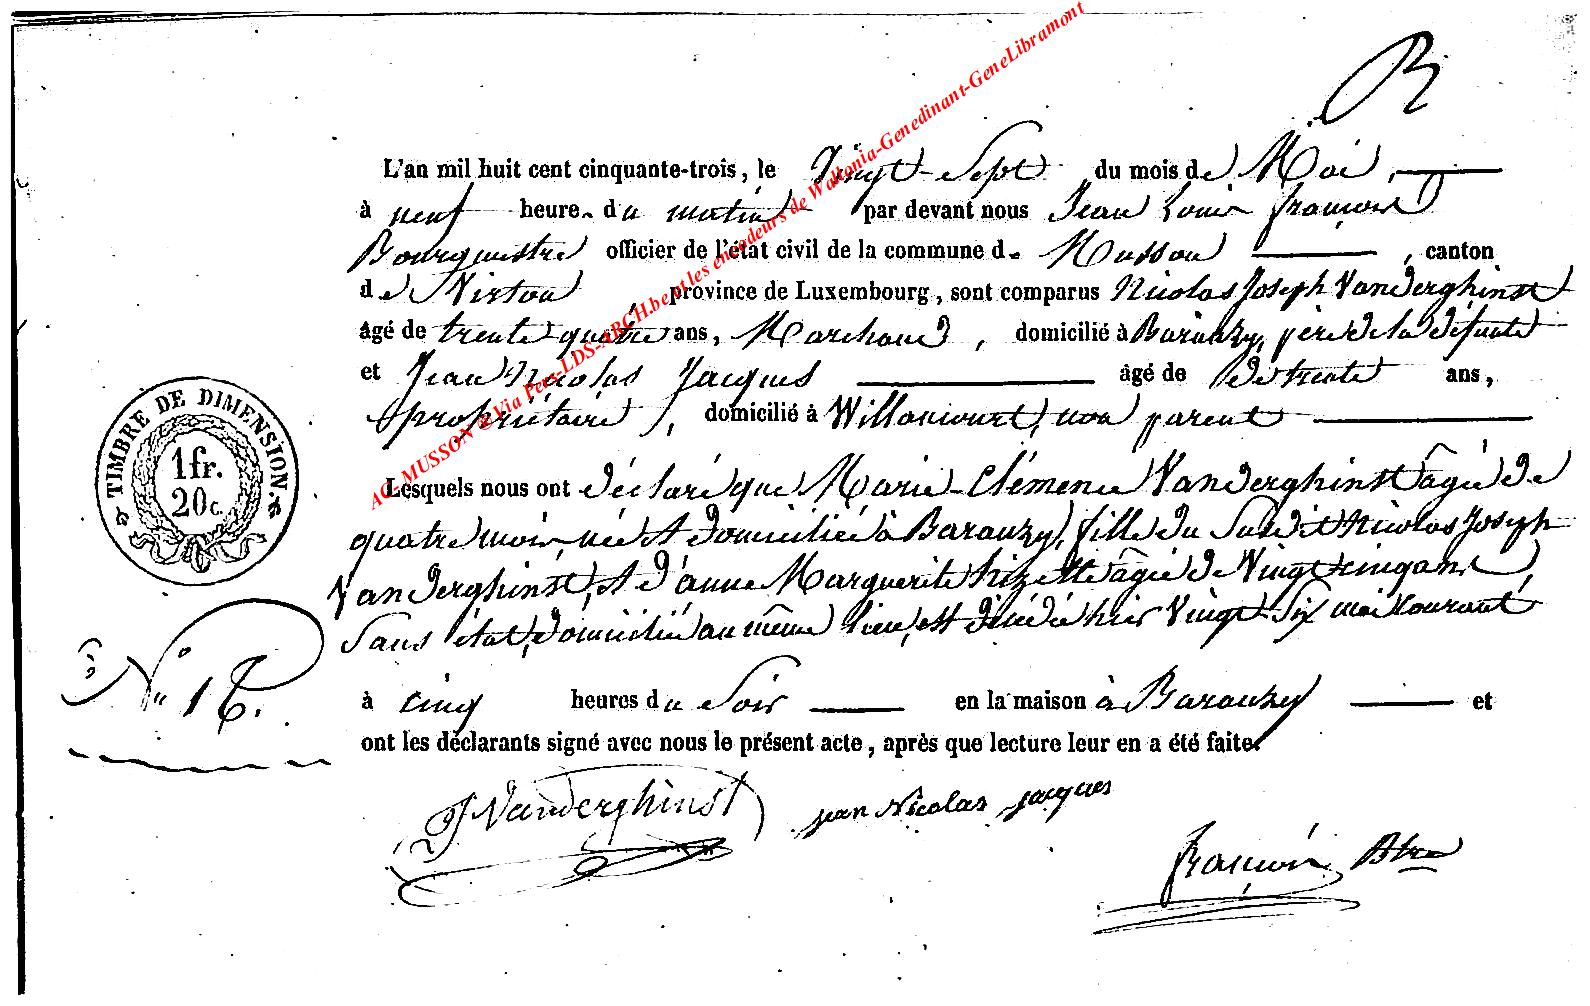 L'an mil huit cent cinquante-trois, le Vingt-Sept du mois de Mai,
à neuf heure du matin par devant nous Jean Louis françois
Bourgmestre officier de l'état civil de la commune de Musson, canton
de Virton province de Luxembourg, sont comparus Nicolas Joseph Vanderghinst
âgé de trente quatre ans, Marchand, domicilié à Baranzy, père de la défunte
et Jean Nicolas Jacques âgé de de trente ans,
propriétaire, domicilié à Willancourt, non parent
Lesquels nous ont déclaré que Marie-Clémence Vanderghinst âgée de
quatre mois, née et domiciliée à Baranzy, fille du Susdit Nicolas Joseph
Vanderghinst, et d'anne Marguerite âgée de Vingt cinq ans,
Sans état, domiciliée au même lieu, est décédée hier Vingt-Six mai Courant
à cinq heures du Soir en la maison à Baranzy et
ont les déclarants signé avec nous le présent acte, après que lecture leur en a été faite.
TIMBRE DE DIMENSION.
1 fr.
20 c.
Vanderghinst
jean Nicolas jacques
françois Btre
AC-MUSSON @ Via Pers-LDS-ARCH.be et les encodeurs de Waltonia-Genedinant-GeneLibramont